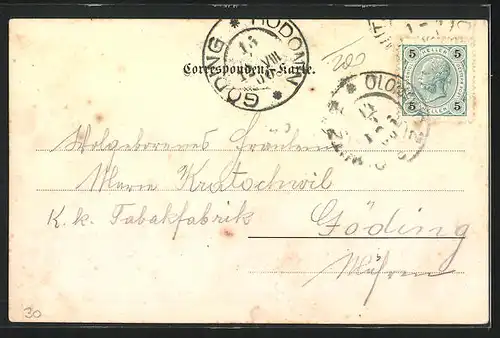 GÖDING * HODONÍN *
14
VIII
Correspondenz-Karte.
200
5 HELLER 5
5 HELLER 5
Wolgeborenes Fräulein
Marie Kratochwil
K. k. Tabakfabrik
Göding
Mähren
30